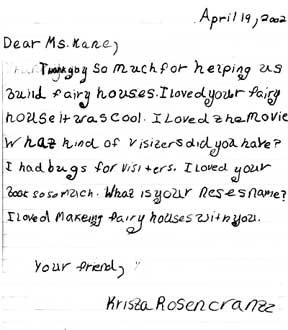 April 19, 2002
Dear Ms. Kane,
so much for helping us
build fairy houses. I loved your fairy
house it was cool. I loved the movie
What kind of visiters did you have?
I had bugs for visiters. I loved your
book so so much. What is your neses name?
I loved Makeing fairy houses with you.
Your friend,
Krista Rosencrantz